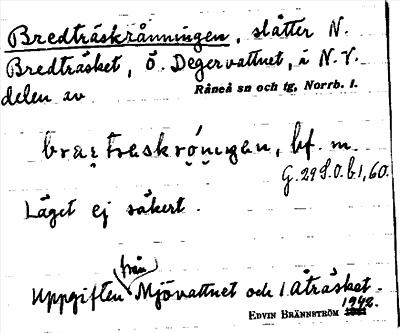 Bredträskrånningen, slåtter N.
Bredträsket, Ö. Degervattnet, i N.V.
delen av Råneå sn och tg, Norrb. l.
bf. m.
G. 29 S.O. b 1, 60.
Läget ej säkert.
Uppgiften från Mjövattnet och l. Åträsket.
EDVIN BRÄNNSTRÖM 1942.